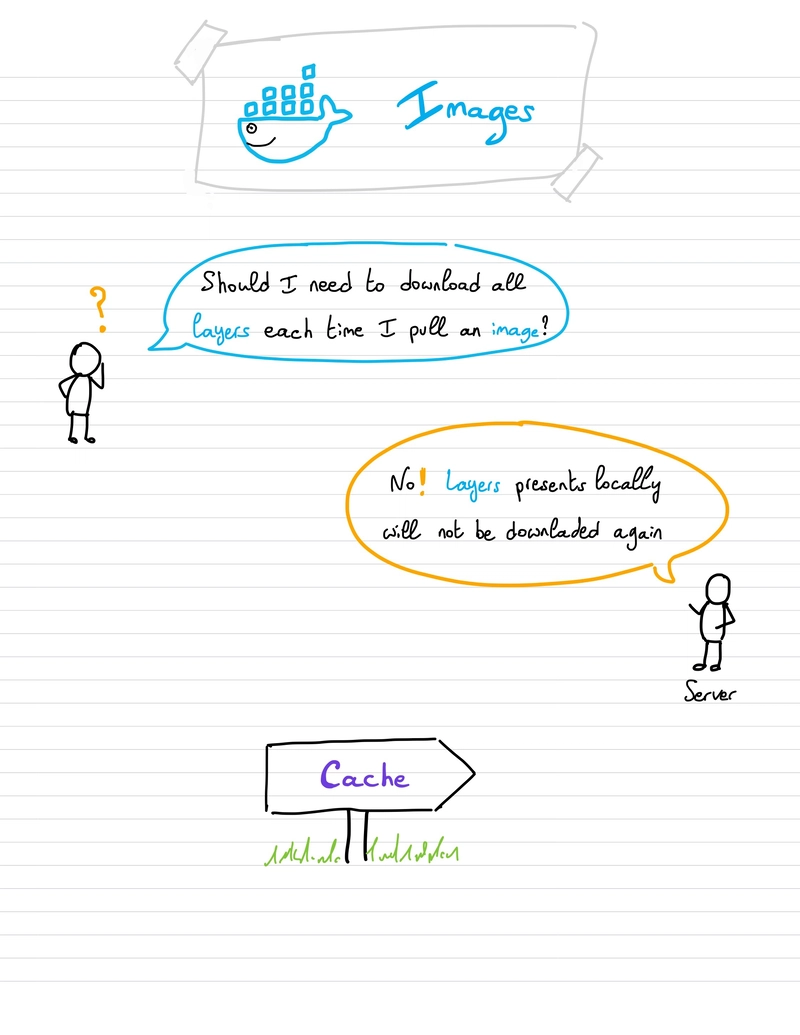 Images
?
Should I need to download all
layers each time I pull an image?
No! Layers presents locally
will not be downladed again
Server
Cache